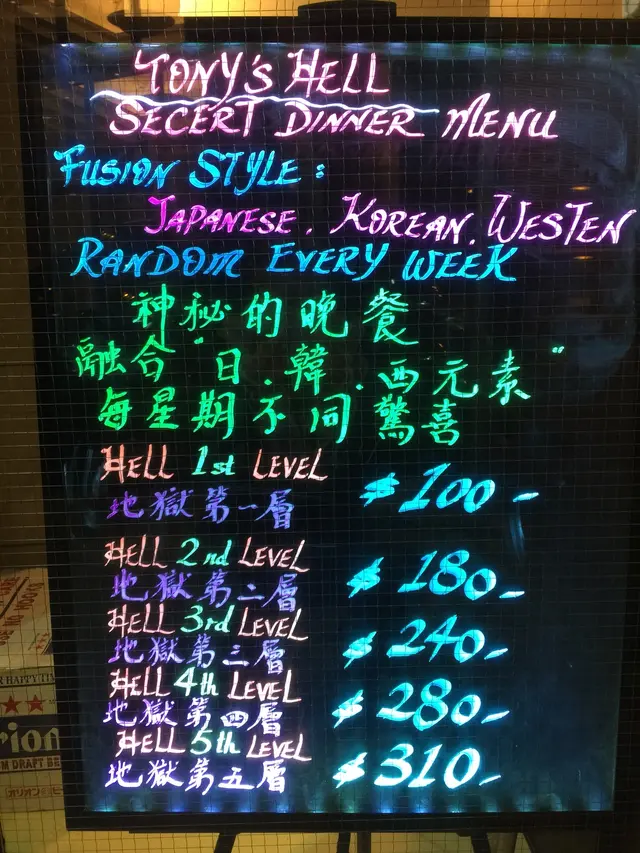 TONY'S HELL
SECERT DINNER MENU
FUSION STYLE:
JAPANESE. KOREAN. WESTEN
RANDOM EVERY WEEK
神秘的晚餐
融合"日.韓.西元素"
每星期不同驚喜
HELL 1st LEVEL
地獄第一層 $100-
HELL 2nd LEVEL
地獄第二層 $180-
HELL 3rd LEVEL
地獄第三層 $240-
HELL 4th LEVEL
地獄第四層 $280-
HELL 5th LEVEL
地獄第五層 $310-
HAPPY TI
rion
M DRAFT BE
オリオンビ